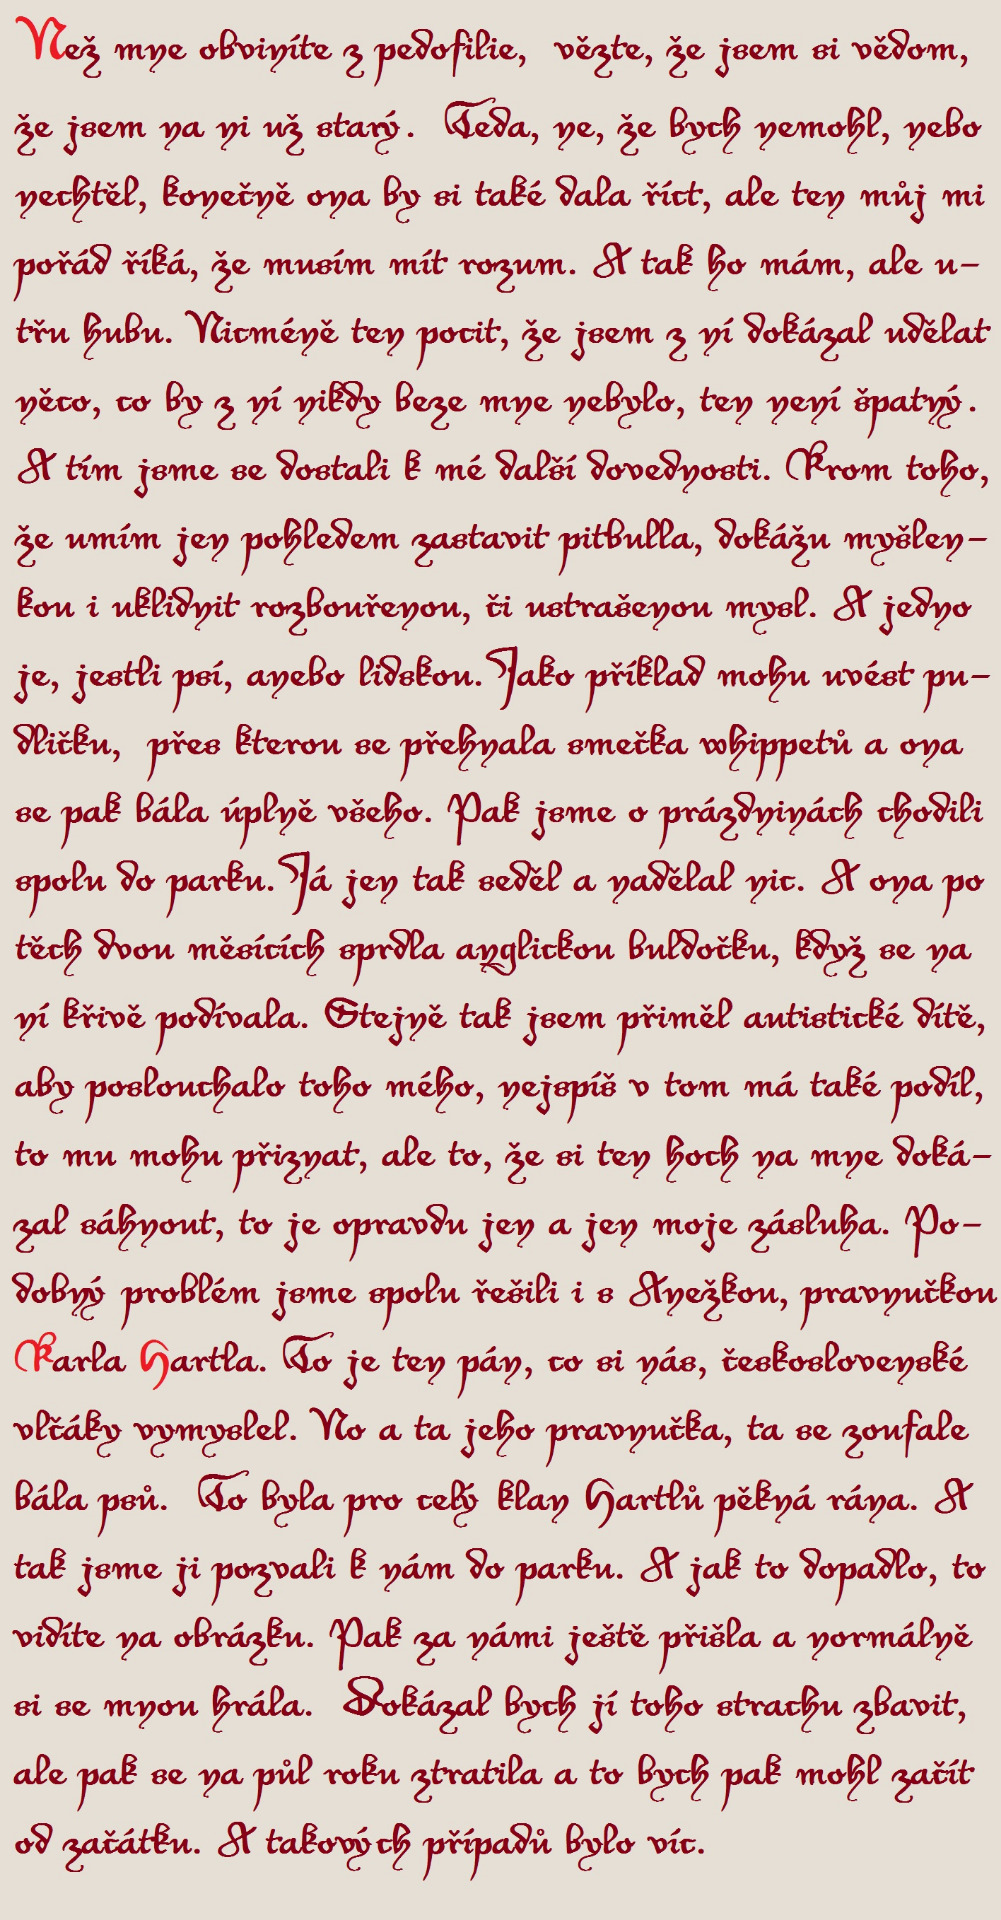 Než mne obviníte z pedofilie, vězte, že jsem si vědom,
že jsem na ni už starý. Teda, ne, že bych nemohl, nebo
nechtěl, konečně ona by si také dala říct, ale ten můj mi
pořád říká, že musím mít rozum. A tak ho mám, ale u-
třu hubu. Nicméně ten pocit, že jsem z ní dokázal udělat
něco, co by z ní nikdy beze mne nebylo, ten není špatný.
A tím jsme se dostali k mé další dovednosti. Krom toho,
že umím jen pohledem zastavit pitbulla, dokážu myšlen-
kou i uklidnit rozbouřenou, či ustrašenou mysl. A jedno
je, jestli psí, anebo lidskou. Jako příklad mohu uvést pu-
dličku, přes kterou se přehnala smečka whippetů a ona
se pak bála úplně všeho. Pak jsme o prázdninách chodili
spolu do parku. Já jen tak seděl a nadělal nic. A ona po
těch dvou měsících sprdla anglickou buldočku, když se na
ní křivě podívala. Stejně tak jsem přiměl autistické dítě,
aby poslouchalo toho mého, nejspíš v tom má také podíl,
to mu mohu přiznat, ale to, že si ten hoch na mne doká-
zal sáhnout, to je opravdu jen a jen moje zásluha. Po-
dobný problém jsme spolu řešili i s Anežkou, pravnučkou
Karla Hartla. To je ten pán, co si nás, československé
vlčáky vymyslel. No a ta jeho pravnučka, ta se zoufale
bála psů. To byla pro celý klan Hartlů pěkná rána. A
tak jsme ji pozvali k nám do parku. A jak to dopadlo, to
vidíte na obrázku. Pak za námi ještě přišla a normálně
si se mnou hrála. Dokázal bych jí toho strachu zbavit,
ale pak se na půl roku ztratila a to bych pak mohl začít
od začátku. A takových případů bylo víc.